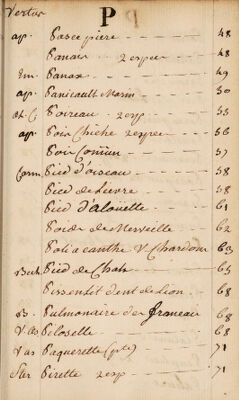 Vertus P
ap. Passe pierre 48
Panais 2 espec 48
Em. Panax 49
ap. Panicault Marin 50
Poireau 2 esp 53
ap. Pois Chiche 2 espec 56
Pois Comūn 57
Carm Pied d'oiseau 58
Pied de Lievre 58
Pied d'alouëtte 61
Pois de Merveille 62
Poliacanthe V Chardon 63
Bech Pied de Chat 65
Pissenlit dent de Lion 68
Pulmonaire des 68
V as Piloselle 68
V as Paquerette (pte) 71
Ster Pirette 2 esp 71